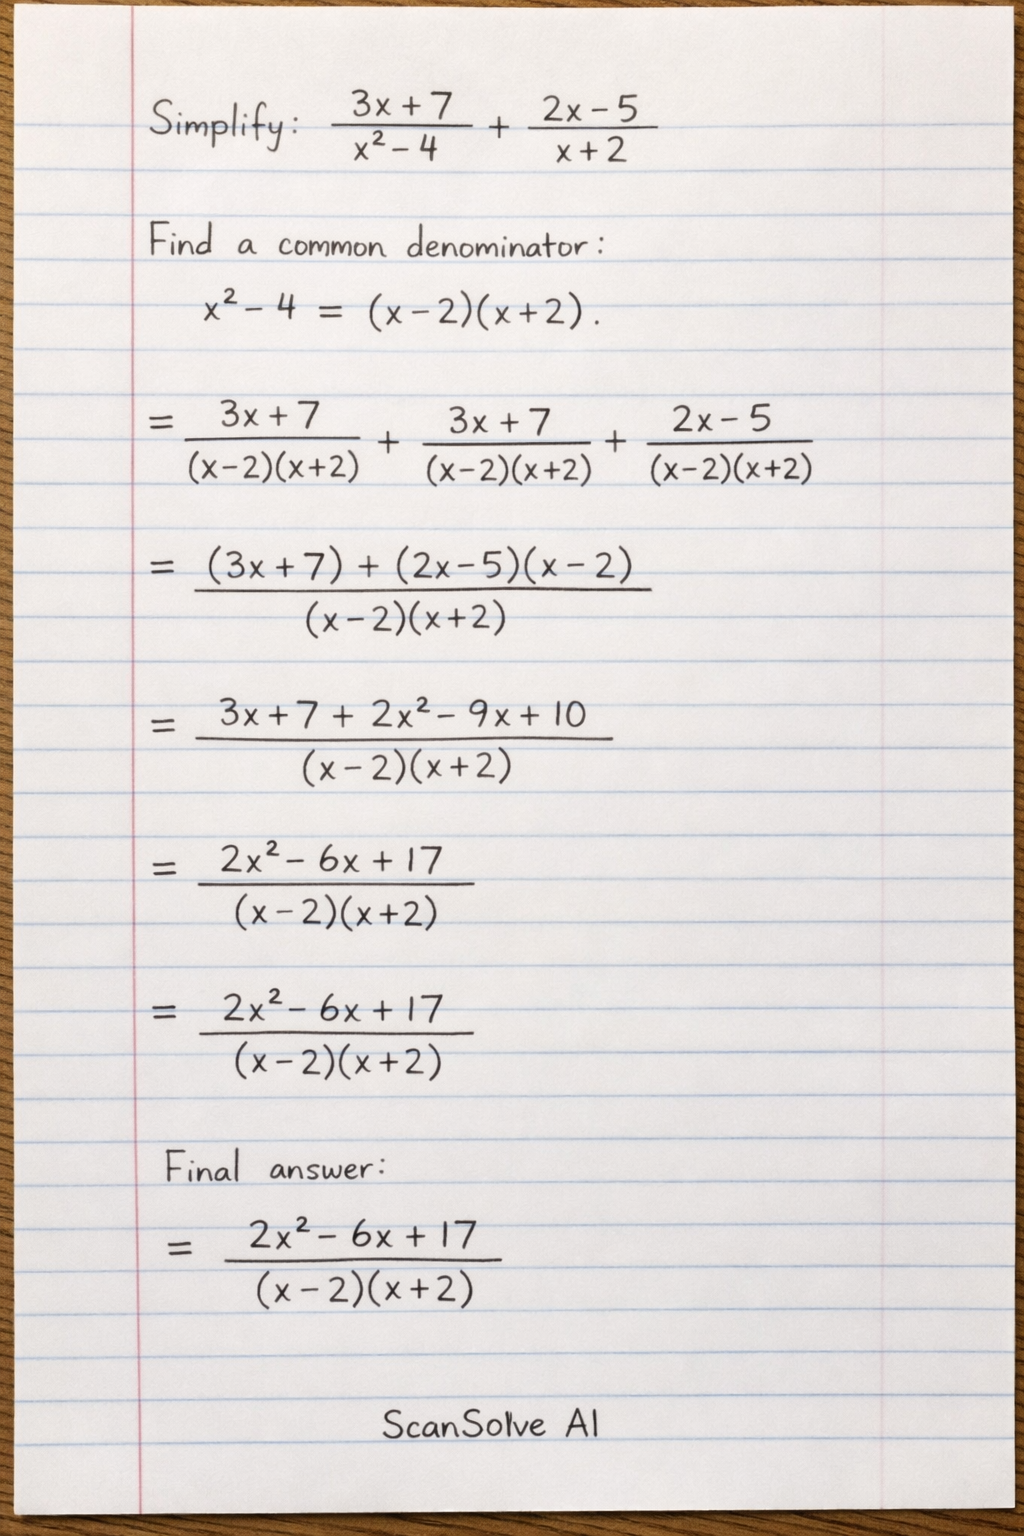 Simplify: (3x + 7)/(x² - 4) + (2x - 5)/(x + 2)
Find a common denominator:
x² - 4 = (x - 2)(x + 2).
= (3x + 7)/((x-2)(x+2)) + (3x + 7)/((x-2)(x+2)) + (2x - 5)/((x-2)(x+2))
= ((3x + 7) + (2x - 5)(x - 2))/((x - 2)(x + 2))
= (3x + 7 + 2x² - 9x + 10)/((x - 2)(x + 2))
= (2x² - 6x + 17)/((x - 2)(x + 2))
= (2x² - 6x + 17)/((x - 2)(x + 2))
Final answer:
= (2x² - 6x + 17)/((x - 2)(x + 2))
ScanSolve AI